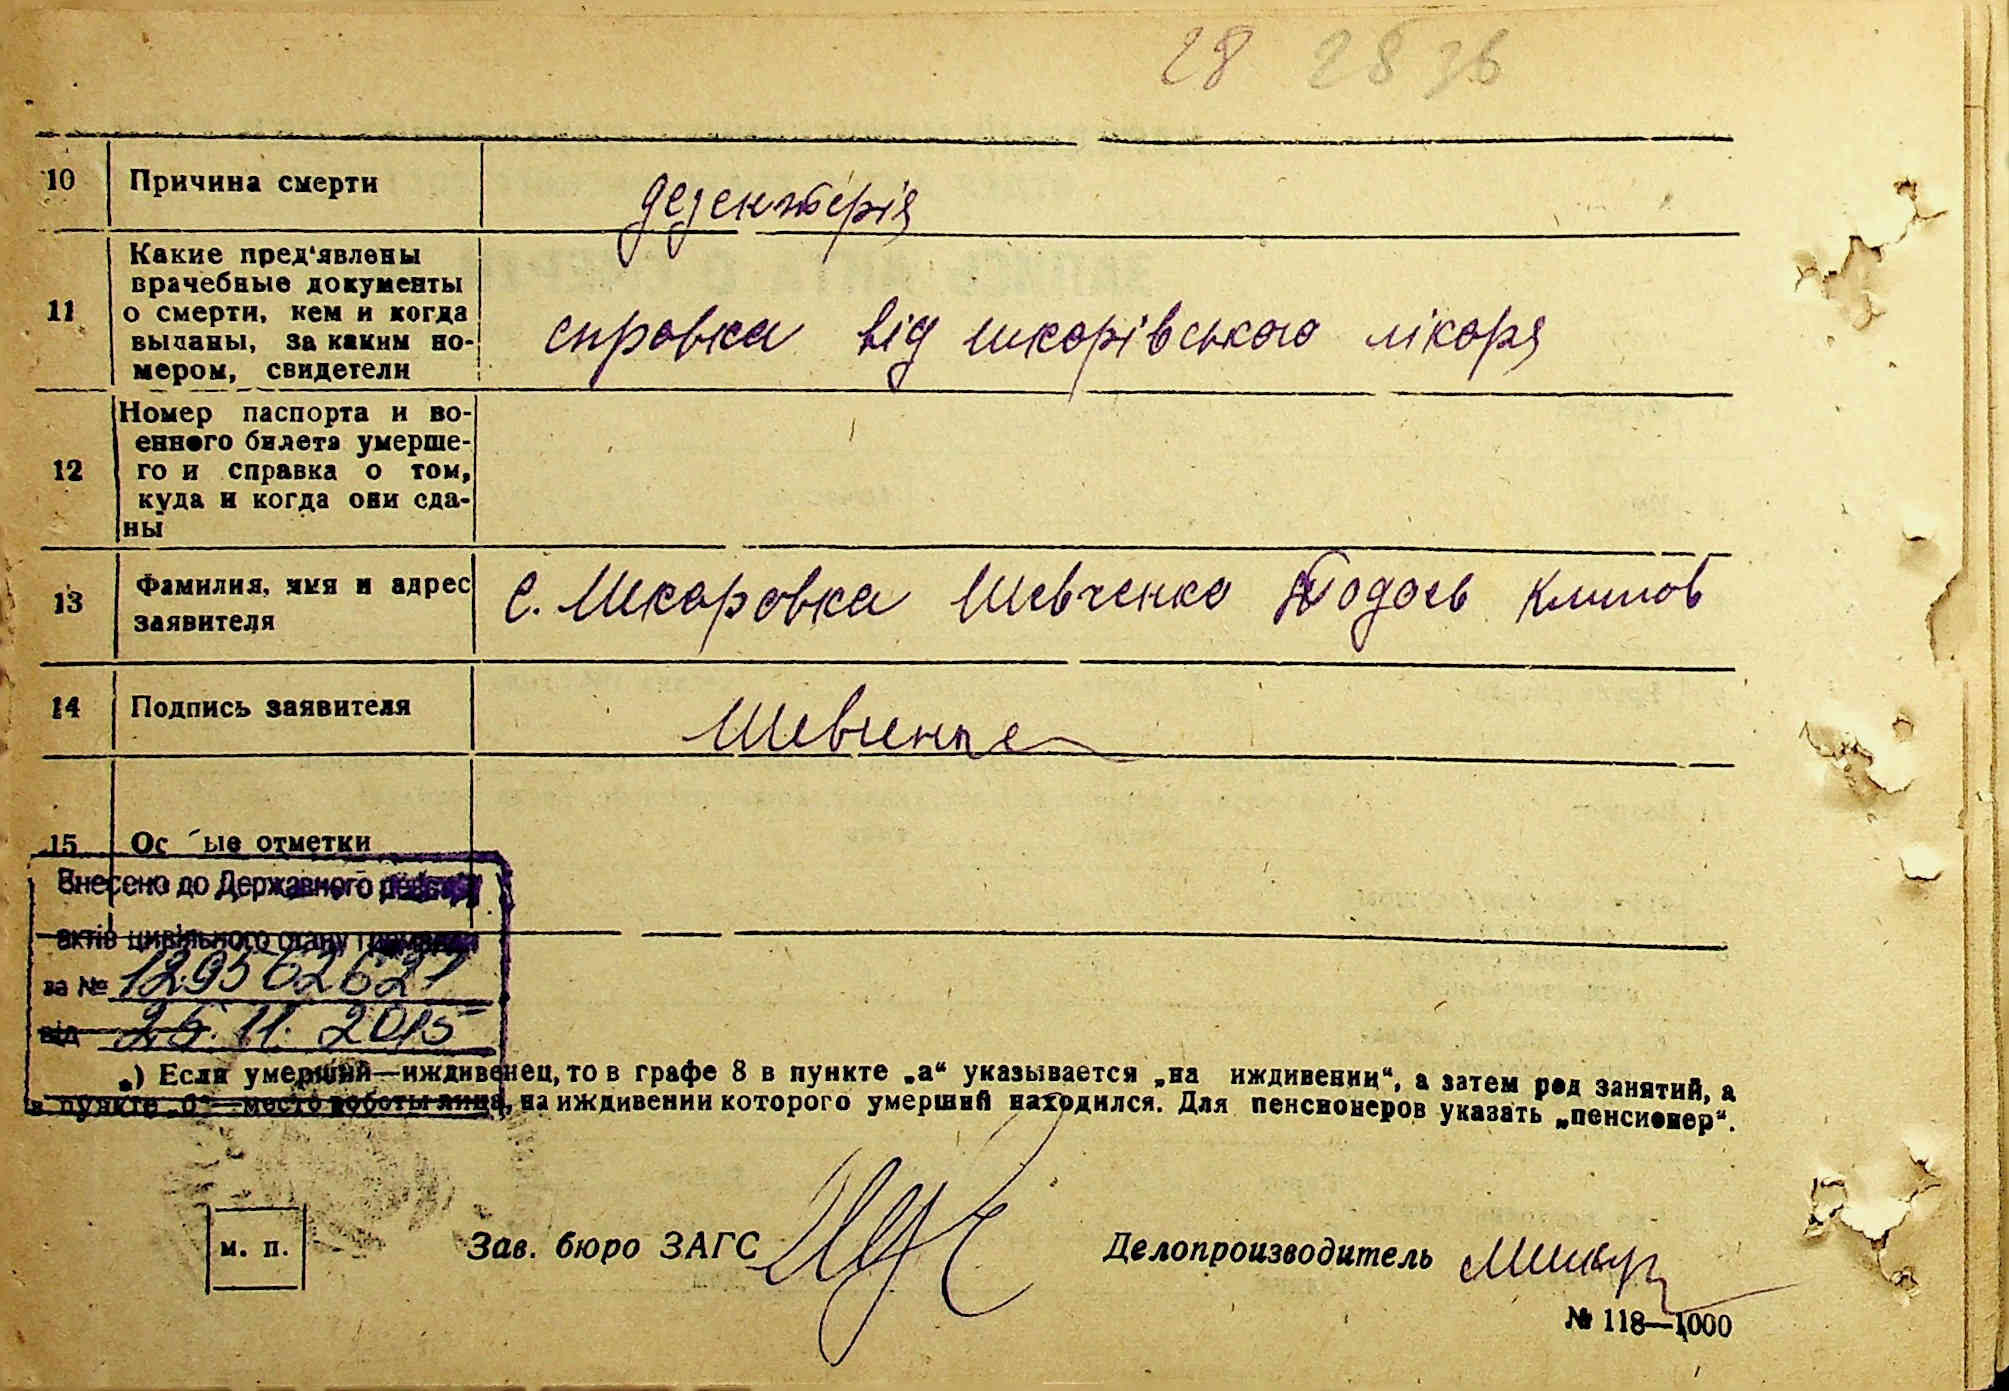 28 28 зв
10 Причина смерти дезентерія
11 Какие пред'явлены врачебные документы о смерти, кем и когда выданы, за каким номером, свидетели
справка від шкарівського лікаря
12 Номер паспорта и во-
енного билета умерше-
го и справка о том,
куда и когда они сда-
ны
13 Фамилия, имя и адрес
заявителя
с. Шкаровка Шевченко Климов
14 Подпись заявителя Шевченко
15 Ос ые отметки
Внесено до Державного реєстру
актів цивільного стану громадян
за № 1295
від 25. 11. 2015
*) Если умерший—иждивенец, то в графе 8 в пункте „а“ указывается „на иждивении“, а затем род занятий, а
в пункте „б“ место работы лица, на иждивении которого умерший находился. Для пенсионеров указать „пенсионер“.
м. п.
Зав. бюро ЗАГС
Делопроизводитель
№ 118—1000